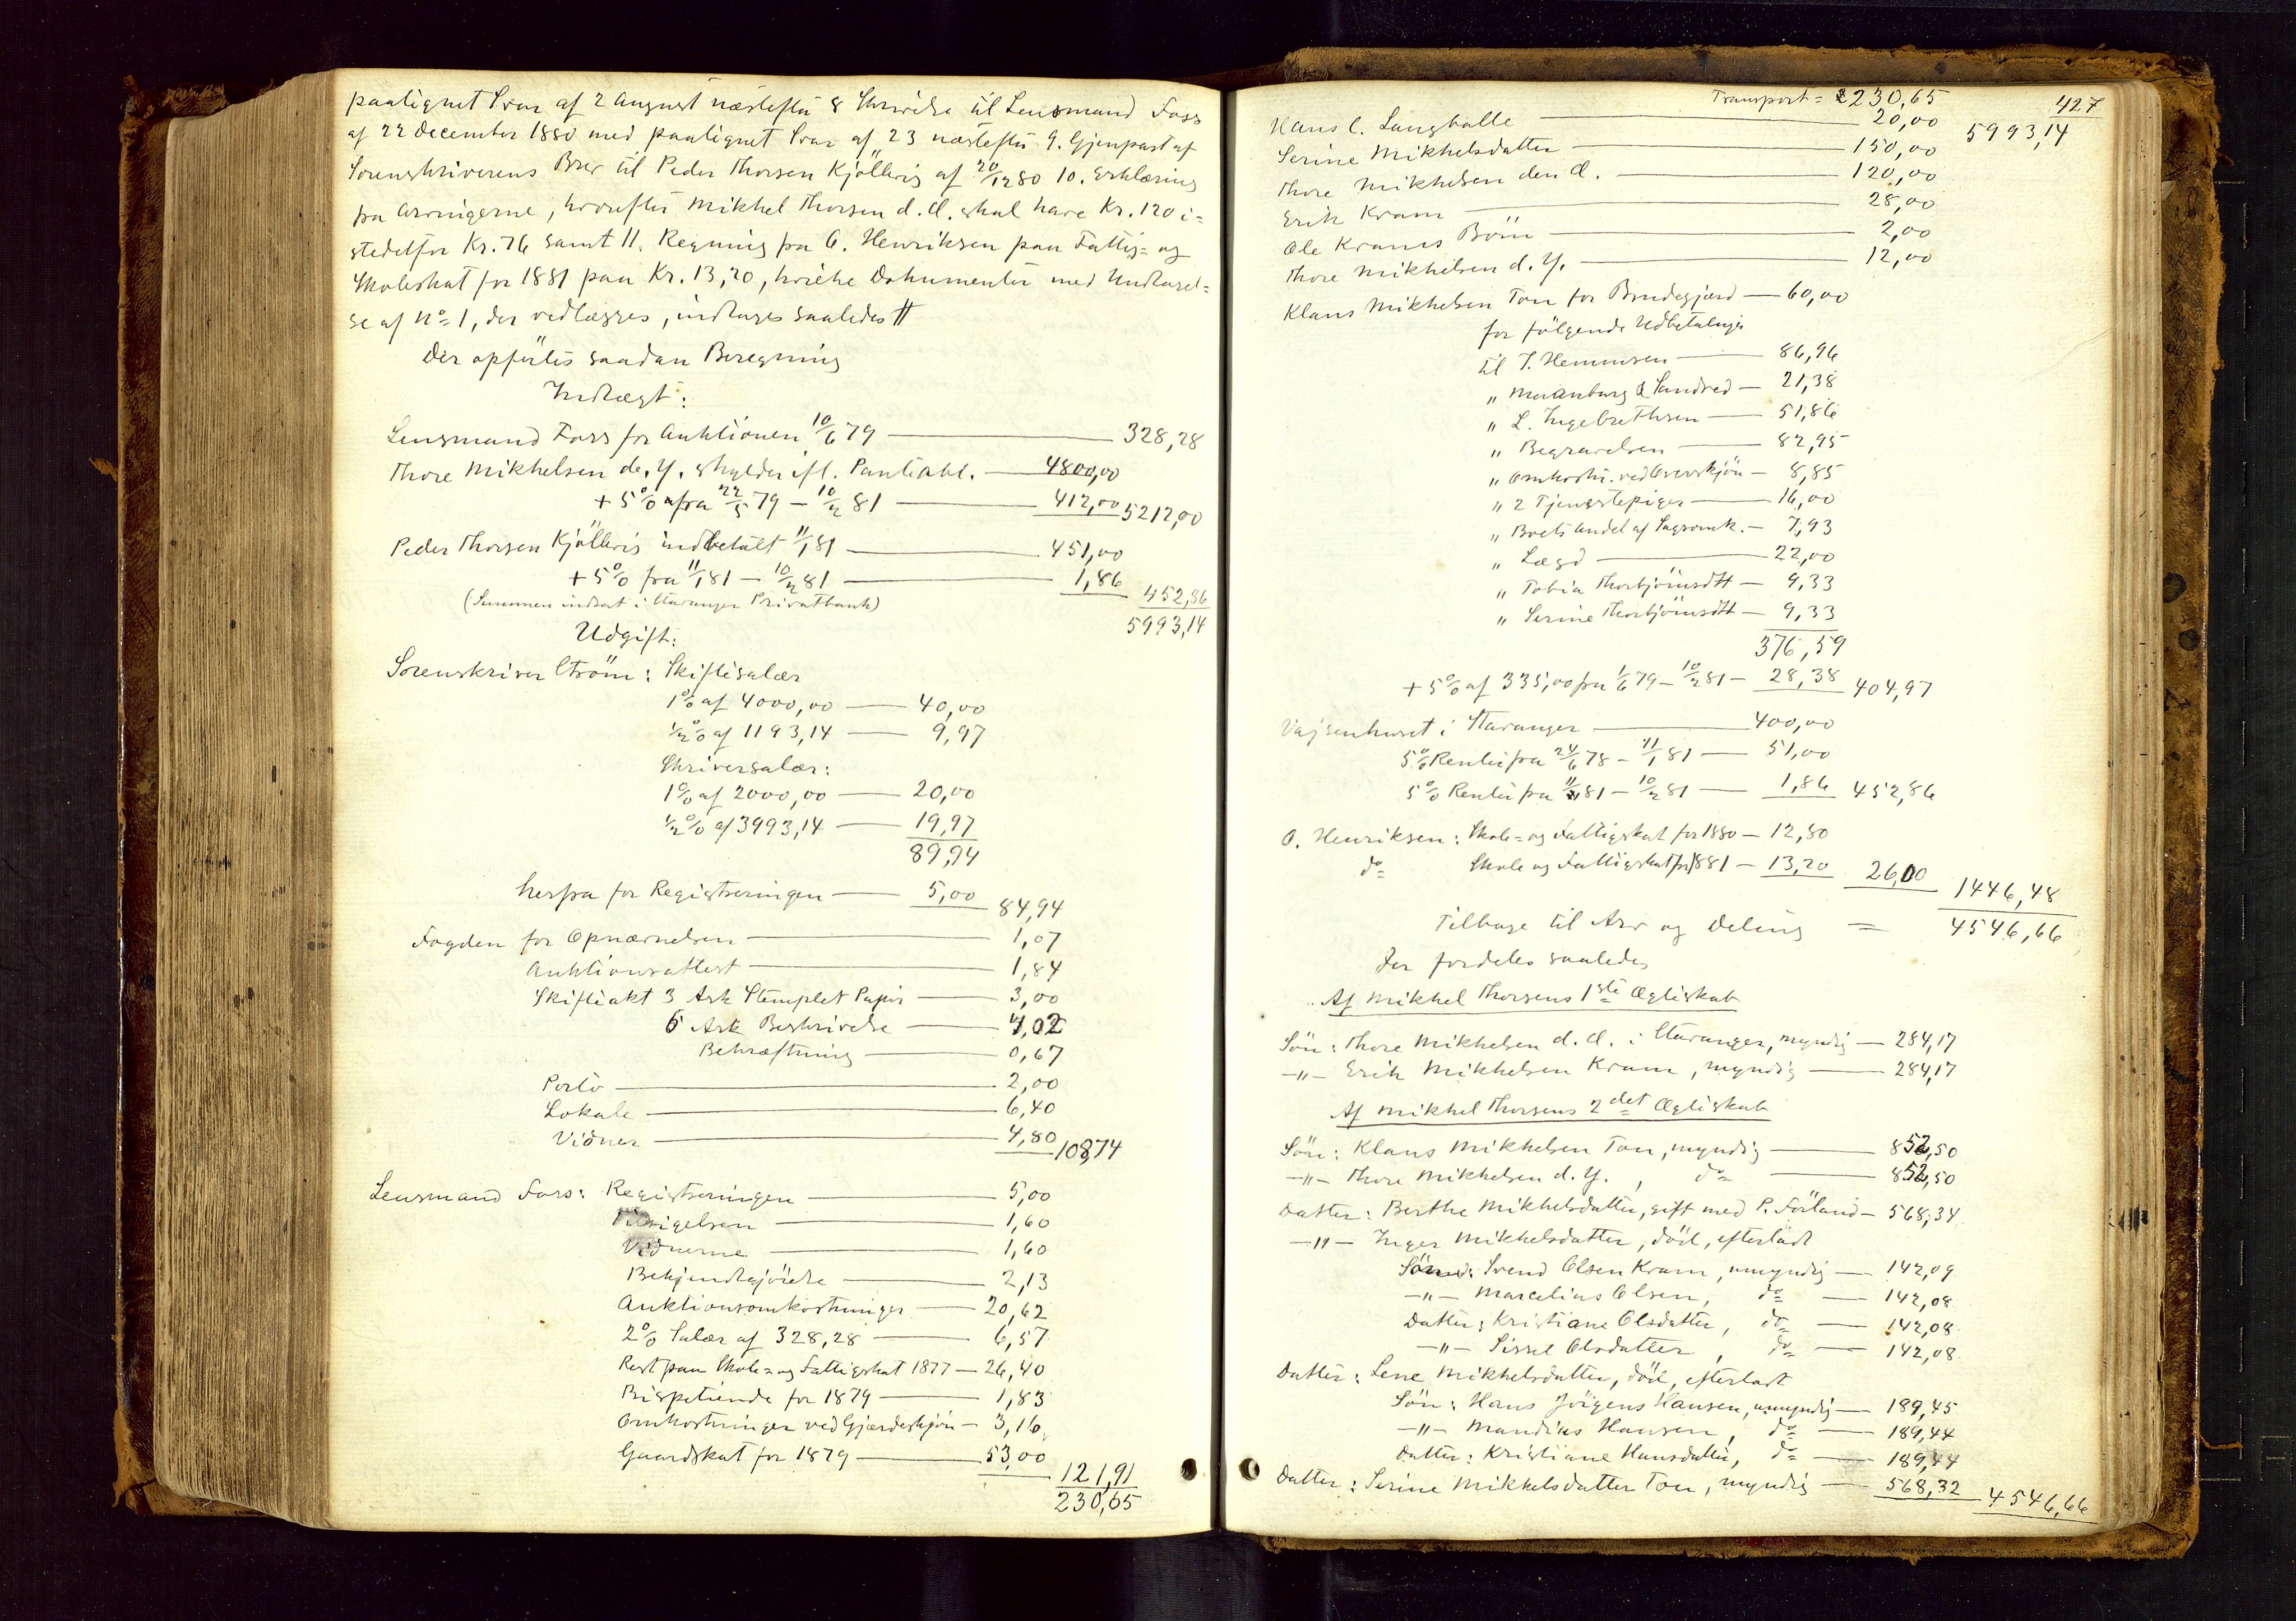 paalignet Svar af 2 August næstefter 8 Skrivelse til Lensmand Foss
af 22 December 1880 med paalignet Svar af 23 næstefter 9. Gjenpart af
Sorenskriverens Brev til Peder Thorsen Kjöllevig af 20/12 80 10. Erklæring
fra Arvingerne, hvorefter Mikkel Thorsen d. Æ. skal have Kr. 120 i=
stedetfor Kr. 76 samt 11. Regning fra O. Henriksen paa Fattig= og
Skoleskat for 1881 paa Kr. 13,20, hvilke Dokumenter med Undtagel=
se af No 1, der vedlægges, indtages saaledes #
Der opførtes saadan Beregning
Indtægt:
Lensmand Foss for Auktionen 10/6 79 — 328,28
Thore Mikkelsen de. Y. skylder ifl. Panteobl. — 4800,00
+ 5% fra 22/5 79 – 10/2 81 — 412,00 5212,00
Peder Thorsen Kjöllevig indbetalt 11/1 81 — 451,00
+ 5% fra 11/1 81 – 10/2 81 — 1,86 452,86
(Summen indsat i Stavanger Privatbank)
5993,14
Udgift:
Sorenskriver Ström: Skiftesalær
1% af 4000,00 — 40,00
½% af 1193,14 — 9,97
Skriversalær:
1% af 2000,00 — 20,00
½% af 3993,14 — 19,97
89,94
herfra for Registreringen — 5,00 84,94
Fogden for Opnævnelsen — 1,07
Auktionsattest — 1,84
Skifteakt 3 Ark Stemplet Papir — 3,00
6 Ark Beskrivelse — 4,02
Bekræftning — 0,67
Porto — 2,00
Lokale — 6,40
Vidner — 4,80 108,74
Lensmand Foss: Registreringen — 5,00
— 1,60
Vidnerne — 1,60
Bekjendtgjörelse — 2,13
Auktionsomkostninger — 20,62
2% Salær af 328,28 — 6,57
Rest paa Skole= og Fattigskat 1877 — 26,40
Bispetiende for 1879 — 1,83
Omkostninger ved Gjerdeskjön — 3,16
Gaardskat for 1879 — 53,00
121,91
230,65
427
Transport = 230,65
5993,14
Hans C. Langballe — 20,00
Serine Mikkelsdatter — 150,00
Thore Mikkelsen den Æ. — 120,00
Erik Kram — 28,00
Ole Krams Börn — 2,00
Thore Mikkelsen d. Y. — 12,00
Klaus Mikkelsen Tou for Brudegjærd — 60,00
for fölgende Udbetalinger
til T. Hemmisen — 86,96
" Meranburg & Sundred — 21,38
" L. Ingebrethsen — 51,86
" Begravelsen — 82,95
" Omkostn. ved Overskjön — 8,85
" 2 Tjenestepiger — 16,00
" Boets Andel af Sagsomk. — 7,93
" Lægd — 22,00
" Tobia Thorbjörnsdtt — 9,33
" Serine Thorbjörnsdtt — 9,33
376,59
+ 5% af 335,00 fra 1/6 79 – 10/2 81 — 28,38 404,97
Vajsenhuset i Stavanger — 400,00
5% Renter fra 24/6 78 – 11/1 81 — 51,00
5% Renter fra 11/1 81 – 10/2 81 — 1,86 452,86
O. Henriksen: Skole= og Fattigskat for 1880 — 12,80
do Skole og Fattigskat for 1881 — 13,20 26,00
1446,48
Tilbage til Arv og Deling = 4546,66
der fordeles saaledes
Af Mikkel Thorsens 1ste Ægteskab
Sön: Thore Mikkelsen d. Æ. i Stavanger, myndig — 284,17
–"– Erik Mikkelsen Kram, myndig — 284,17
Af Mikkel Thorsens 2det Ægteskab
Sön: Klaus Mikkelsen Tou, myndig — 852,50
–"– Thore Mikkelsen d. Y., do — 852,50
Datter: Berthe Mikkelsdatter, gift med P. Förland — 568,34
–"– Inger Mikkelsdatter, död, efterladt
Sön: Svend Olsen Kram, umyndig — 142,09
–"– Marcelius Olsen, do — 142,08
Datter: Kristiane Olsdatter, do — 142,08
–"– Sissel Olsdatter, do — 142,08
Datter: Lene Mikkelsdatter, död, efterladt
Sön: Hans Jörgens Hansen, umyndig — 189,45
–"– Mandius Hansen, do — 189,44
Datter: Kristiane Hansdatter, do — 189,44
Datter: Serine Mikkelsdatter Tou, myndig — 568,32 4546,66